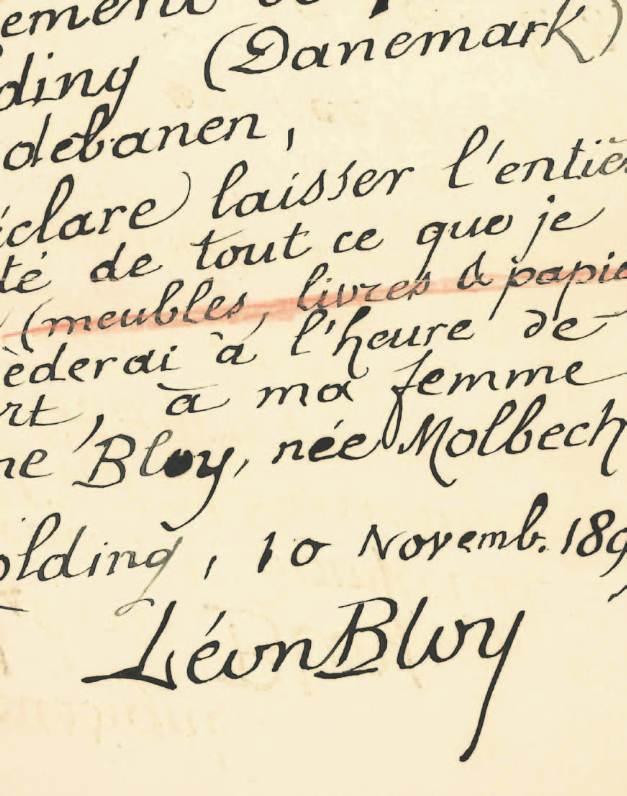 ement
ding (Danemark)
debanen,
éclare laisser l'entiè
té de tout ce que je
(meubles, livres & papie
èderai à l'heure de
rt, à ma femme
ne Bloy, née Molbech
olding, 10 Novemb. 189
Léon Bloy